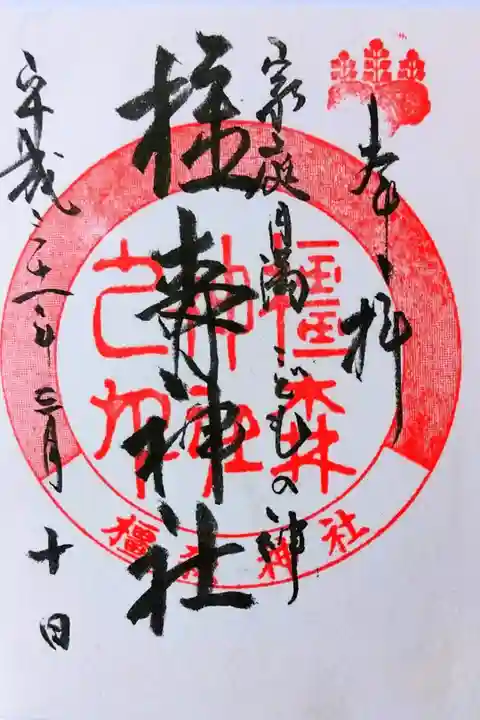 奉拝
家庭円満こどもの神
橿森神社
平成三十一年三月十日
橿森
神社
之印
橿森神社